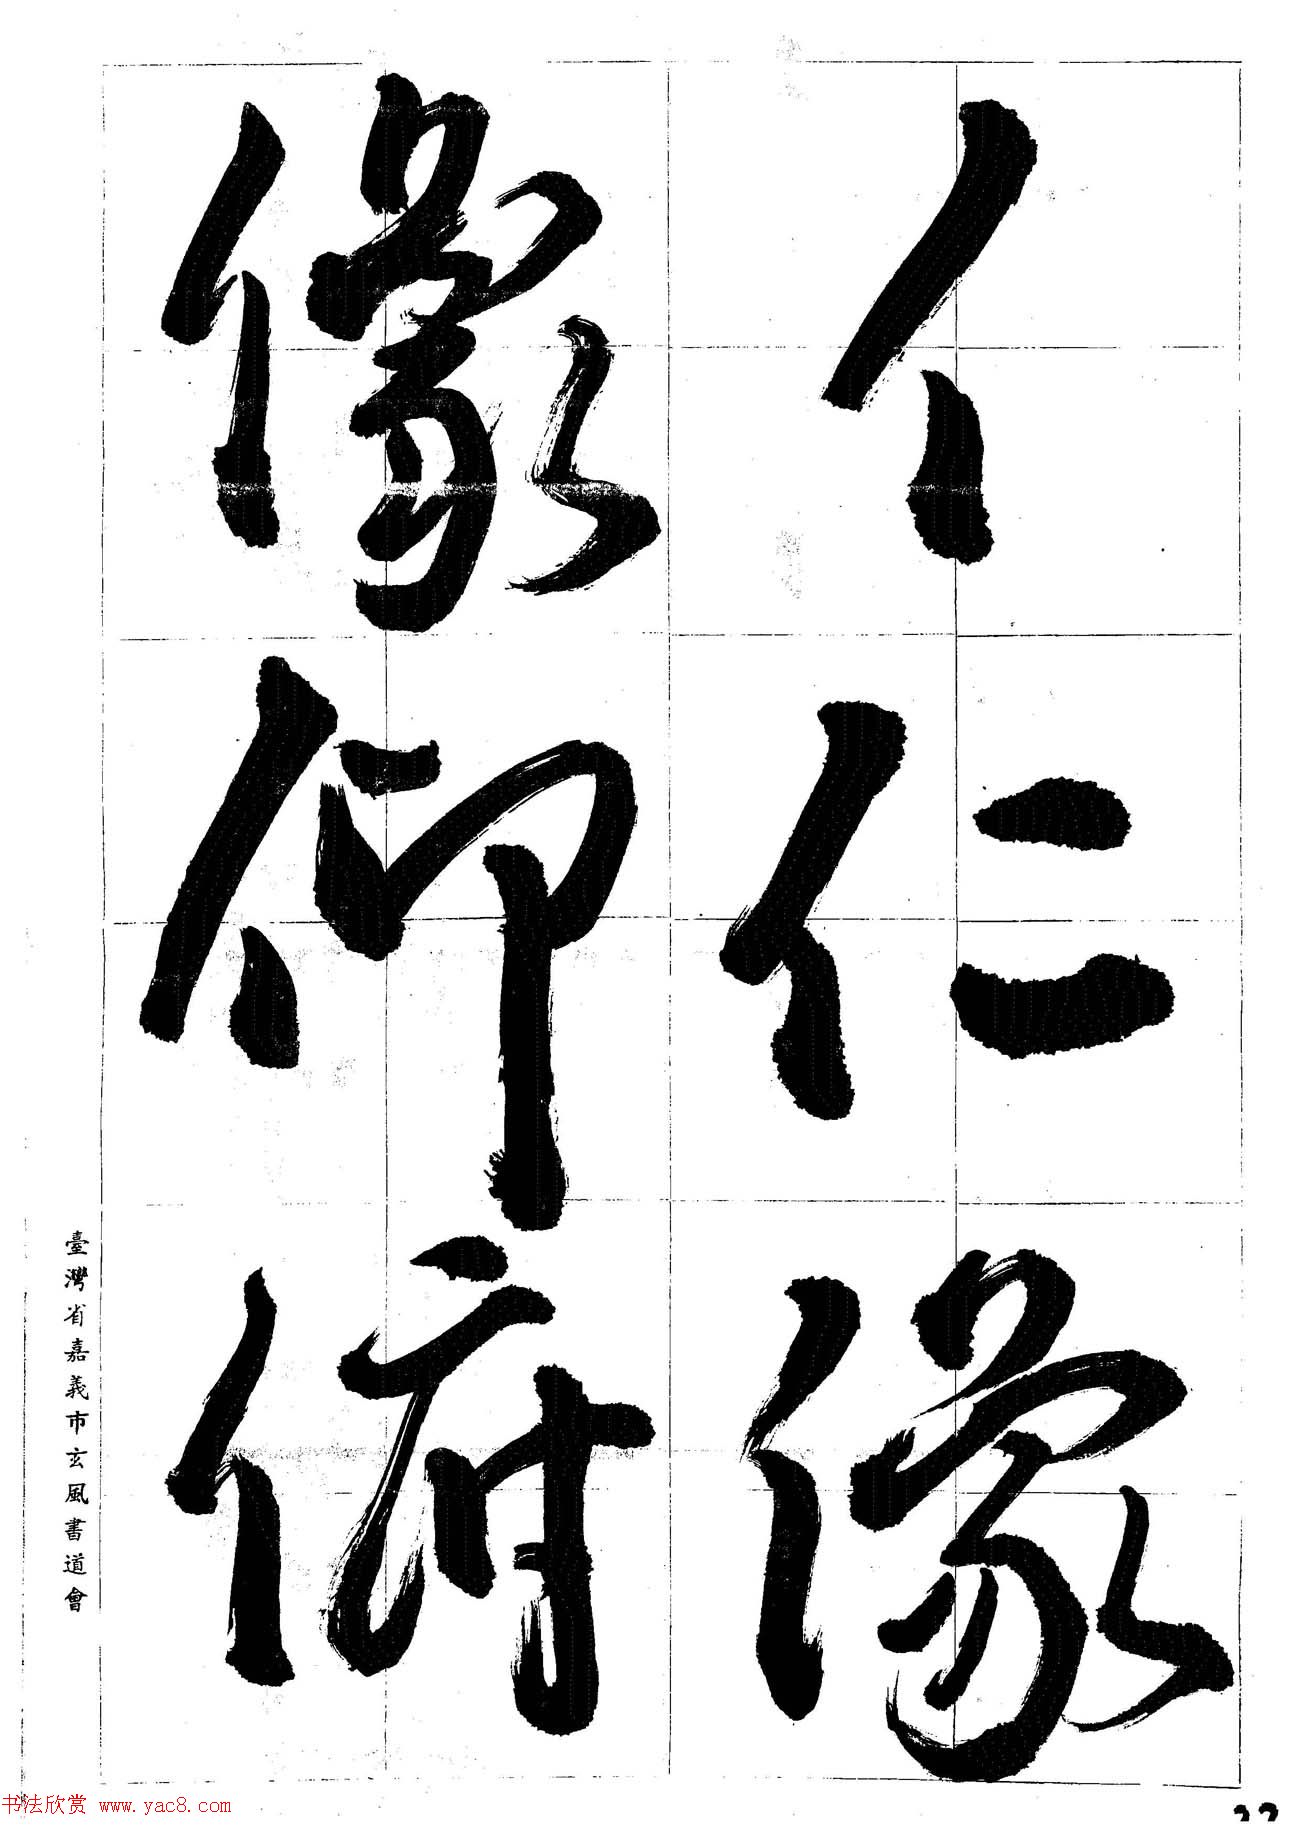 亻仁像
像仰俯
臺灣省嘉義市玄風書道會
书法欣赏 www.yac8.com